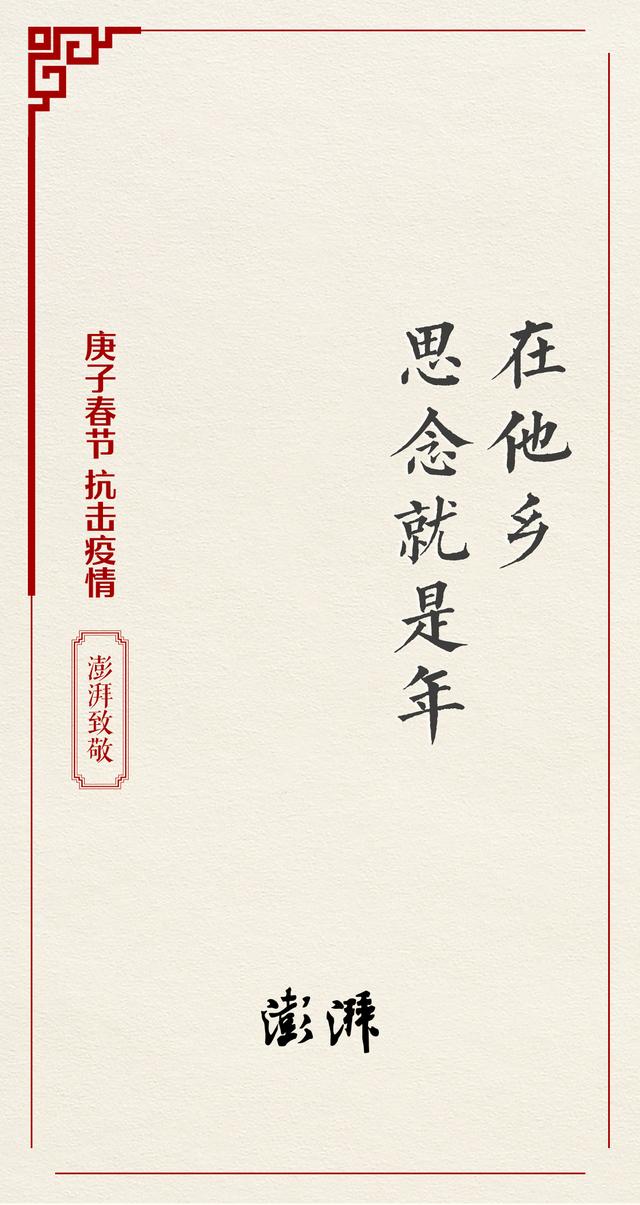 在他乡
思念就是年
庚子春节 抗击疫情
澎湃致敬
澎湃